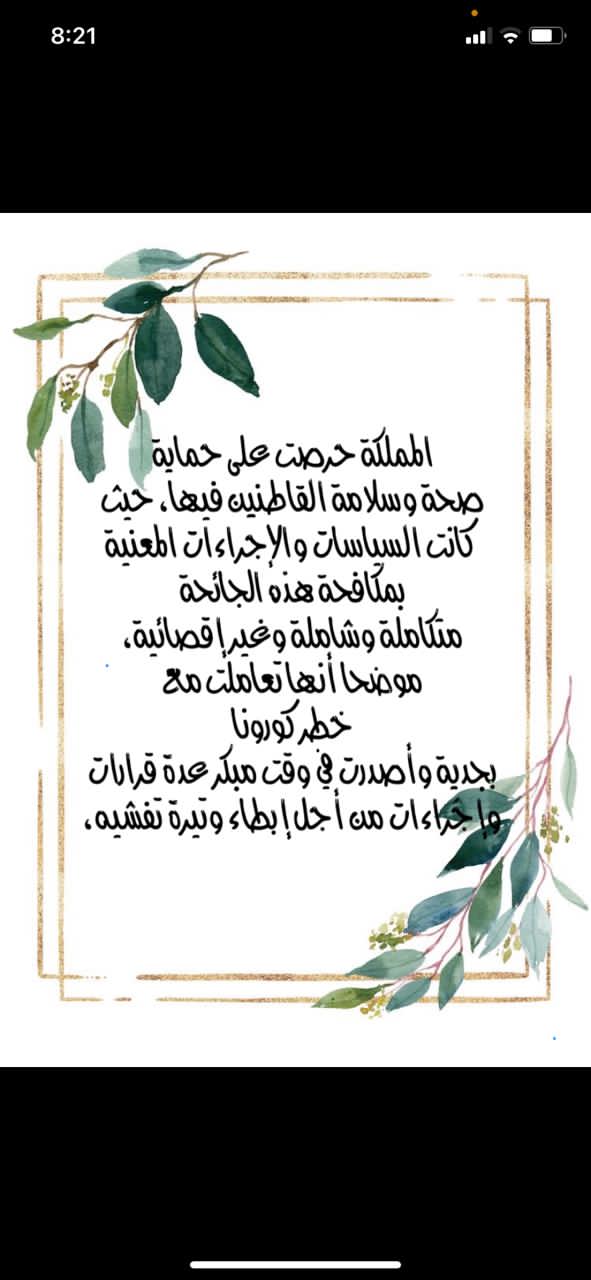 8:21
المملكة حرصت على حماية
صحة وسلامة القاطنين فيها، حيث
كانت السياسات والإجراءات المعنية
بمكافحة هذه الجائحة
متكاملة وشاملة وغير إقصائية،
موضحا أنها تعاملت مع
خطر كورونا
بجدية وأصدرت في وقت مبكر عدة قرارات
وإجراءات من أجل إبطاء وتيرة تفشيه،